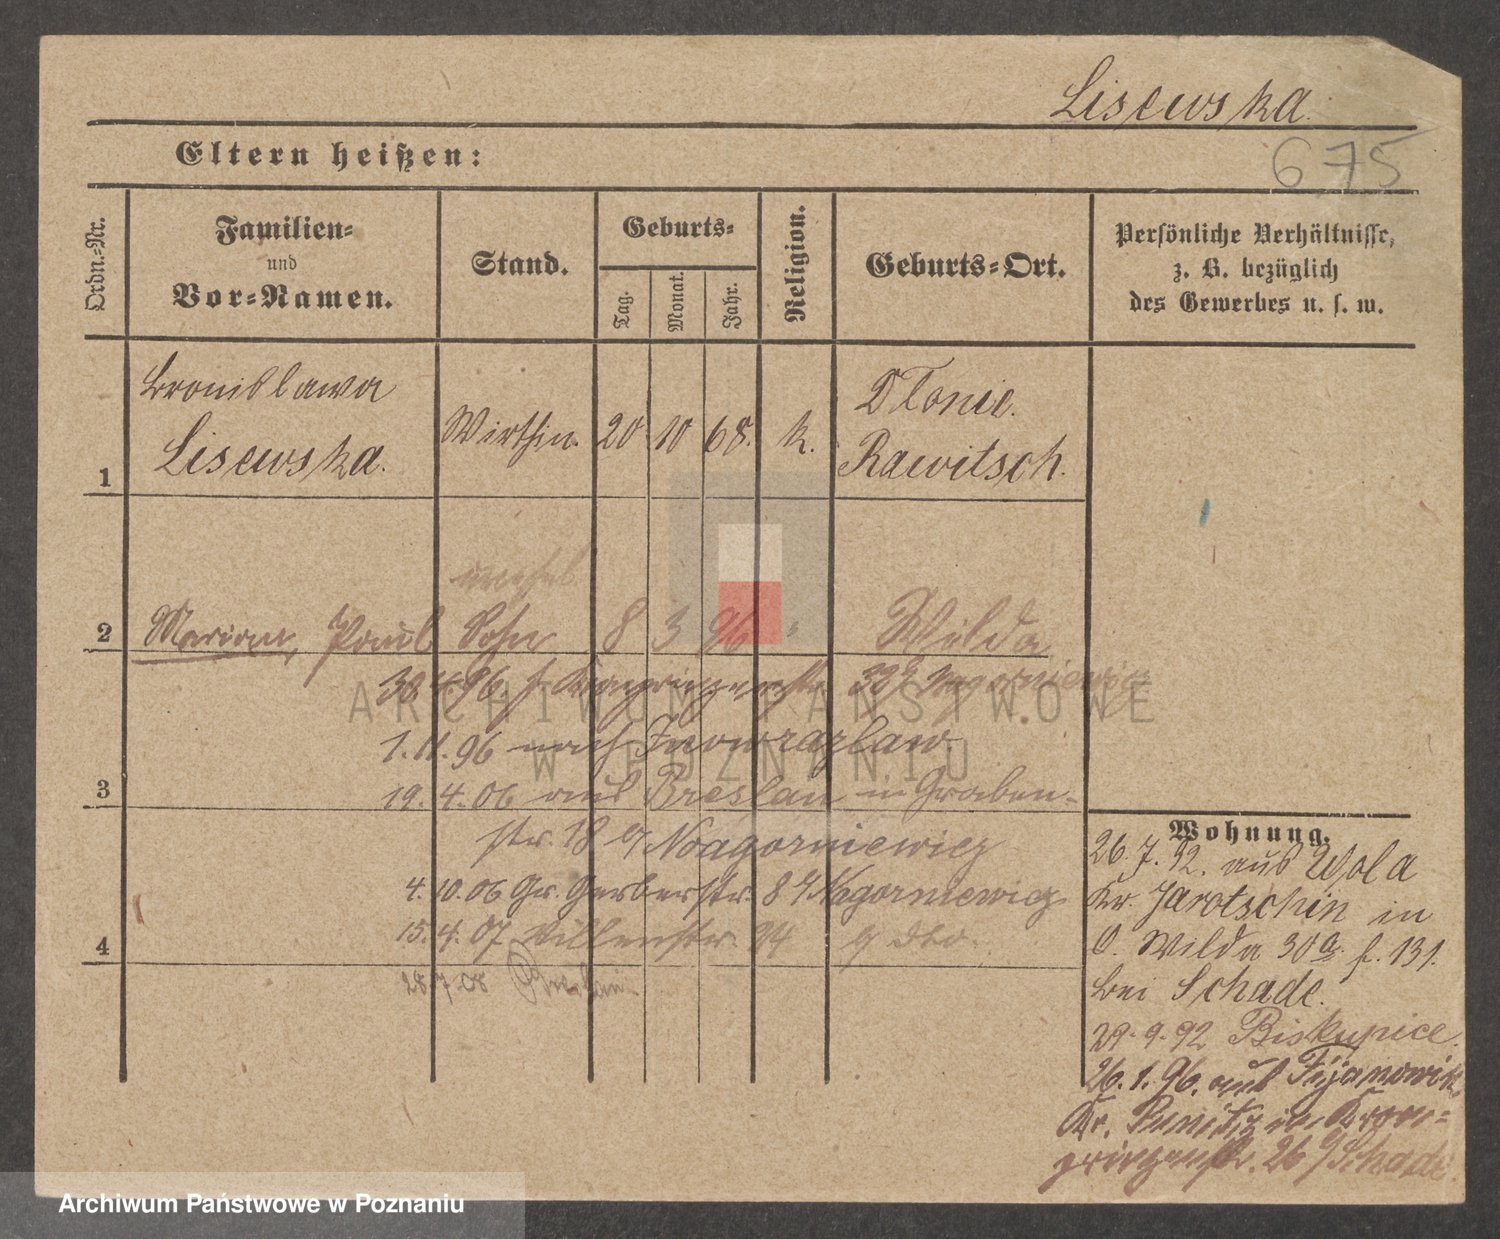 Lisewska.
675
Eltern heißen:
Ordn.-Nr.
Familien-
und
Vor-Namen.
Stand.
Geburts-
Tag.
Monat.
Jahr.
Religion.
Geburts-Ort.
Persönliche Verhältnisse,
z. B. bezüglich
des Gewerbes u. s. w.
1
Bronislawa
Lisewska.
Wirthin.
20
10
68.
k.
Dlonie.
Rawitsch.
2
Marian, Paul
unehel.
Sohn
8
3
96
"
Wilda
30.4.96 f. Kronprinzenstr. 32 Nagorniewicz
1.11.96 nach Inowrazlaw.
3
19.4.06 aus Breslau in Graben-
str. 18 Noagorniewicz
4.10.06 Gr. Gerberstr. 8 Nagorniewicz
4
15.4.07 Villenstr. dto.
28.7.08
Wohnung.
26.7.92. aus Wola
Kr. Jarotschin in
O. Wilda 30a f. 131.
bei Schade.
29.9.92 Biskupice.
26.1.96. aus
Kr. in Kron-
prinzenstr. 26 Schade.
ARCHIWUM PAŃSTWOWE
W POZNANIU
Archiwum Państwowe w Poznaniu